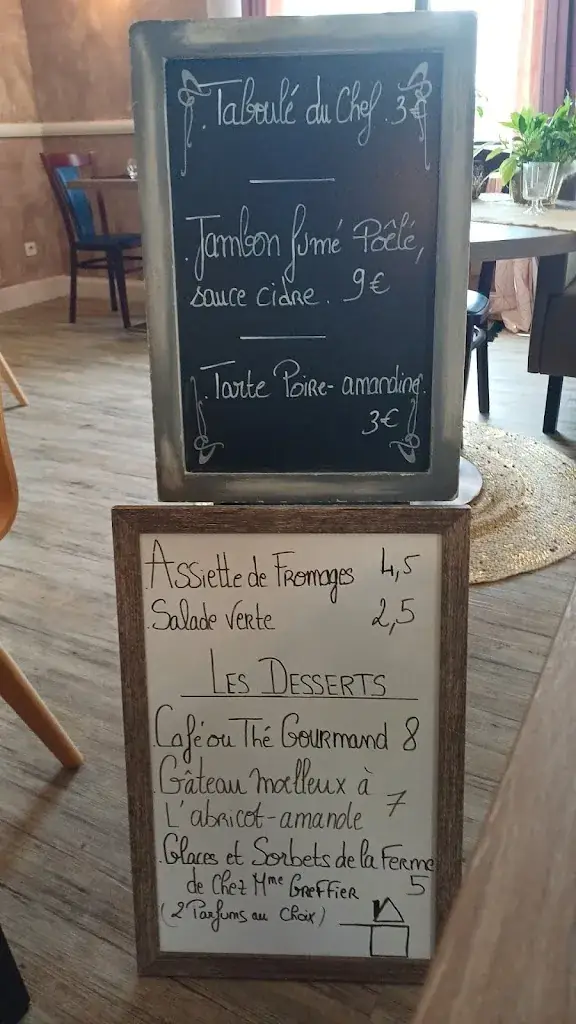 Taboulé du Chef 3€
Jambon fumé Poêlé,
sauce cidre. 9€
Tarte Poire-amandine.
3€
Assiette de Fromages 4,5
Salade verte 2,5
Les Desserts
Café ou Thé Gourmand 8
Gâteau moelleux à
L'abricot-amande 7
Glaces et Sorbets de la Ferme
de Chez Mme Greffier 5
(2 Parfums au Choix)